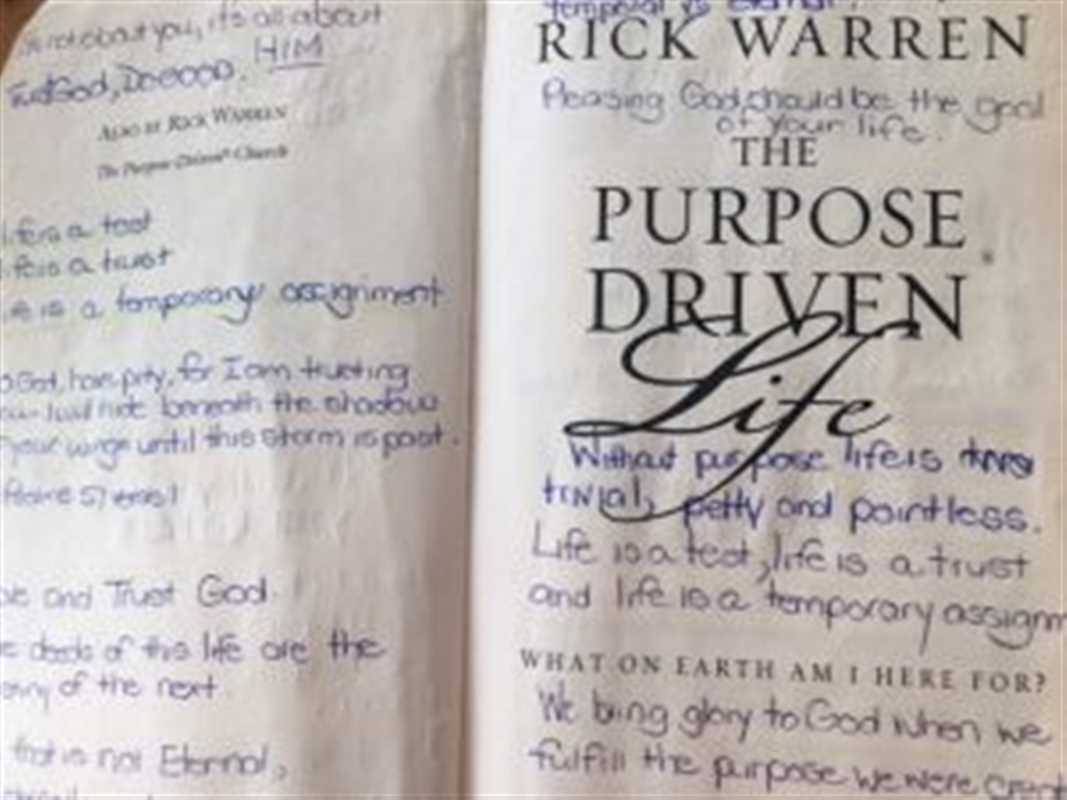 not about you, it's all about
HIM
Trust God,
ALSO BY RICK WARREN
The Purpose-Driven® Church
life is a test
life is a trust
life is a temporary assignment
God, have pity, for I am trusting
hide beneath the shadow
your wings until this storm is past.
and Trust God
deeds of this life are the
of the next.
that is not Eternal,
temporal vs eternal.
RICK WARREN
Pleasing God, should be the goal
of your life.
THE
PURPOSE
DRIVEN
Life
Without purpose life is
trivial, petty and pointless.
Life is a test, life is a trust
and life is a temporary assignm
WHAT ON EARTH AM I HERE FOR?
We bring glory to God when we
fulfill the purpose we were creat